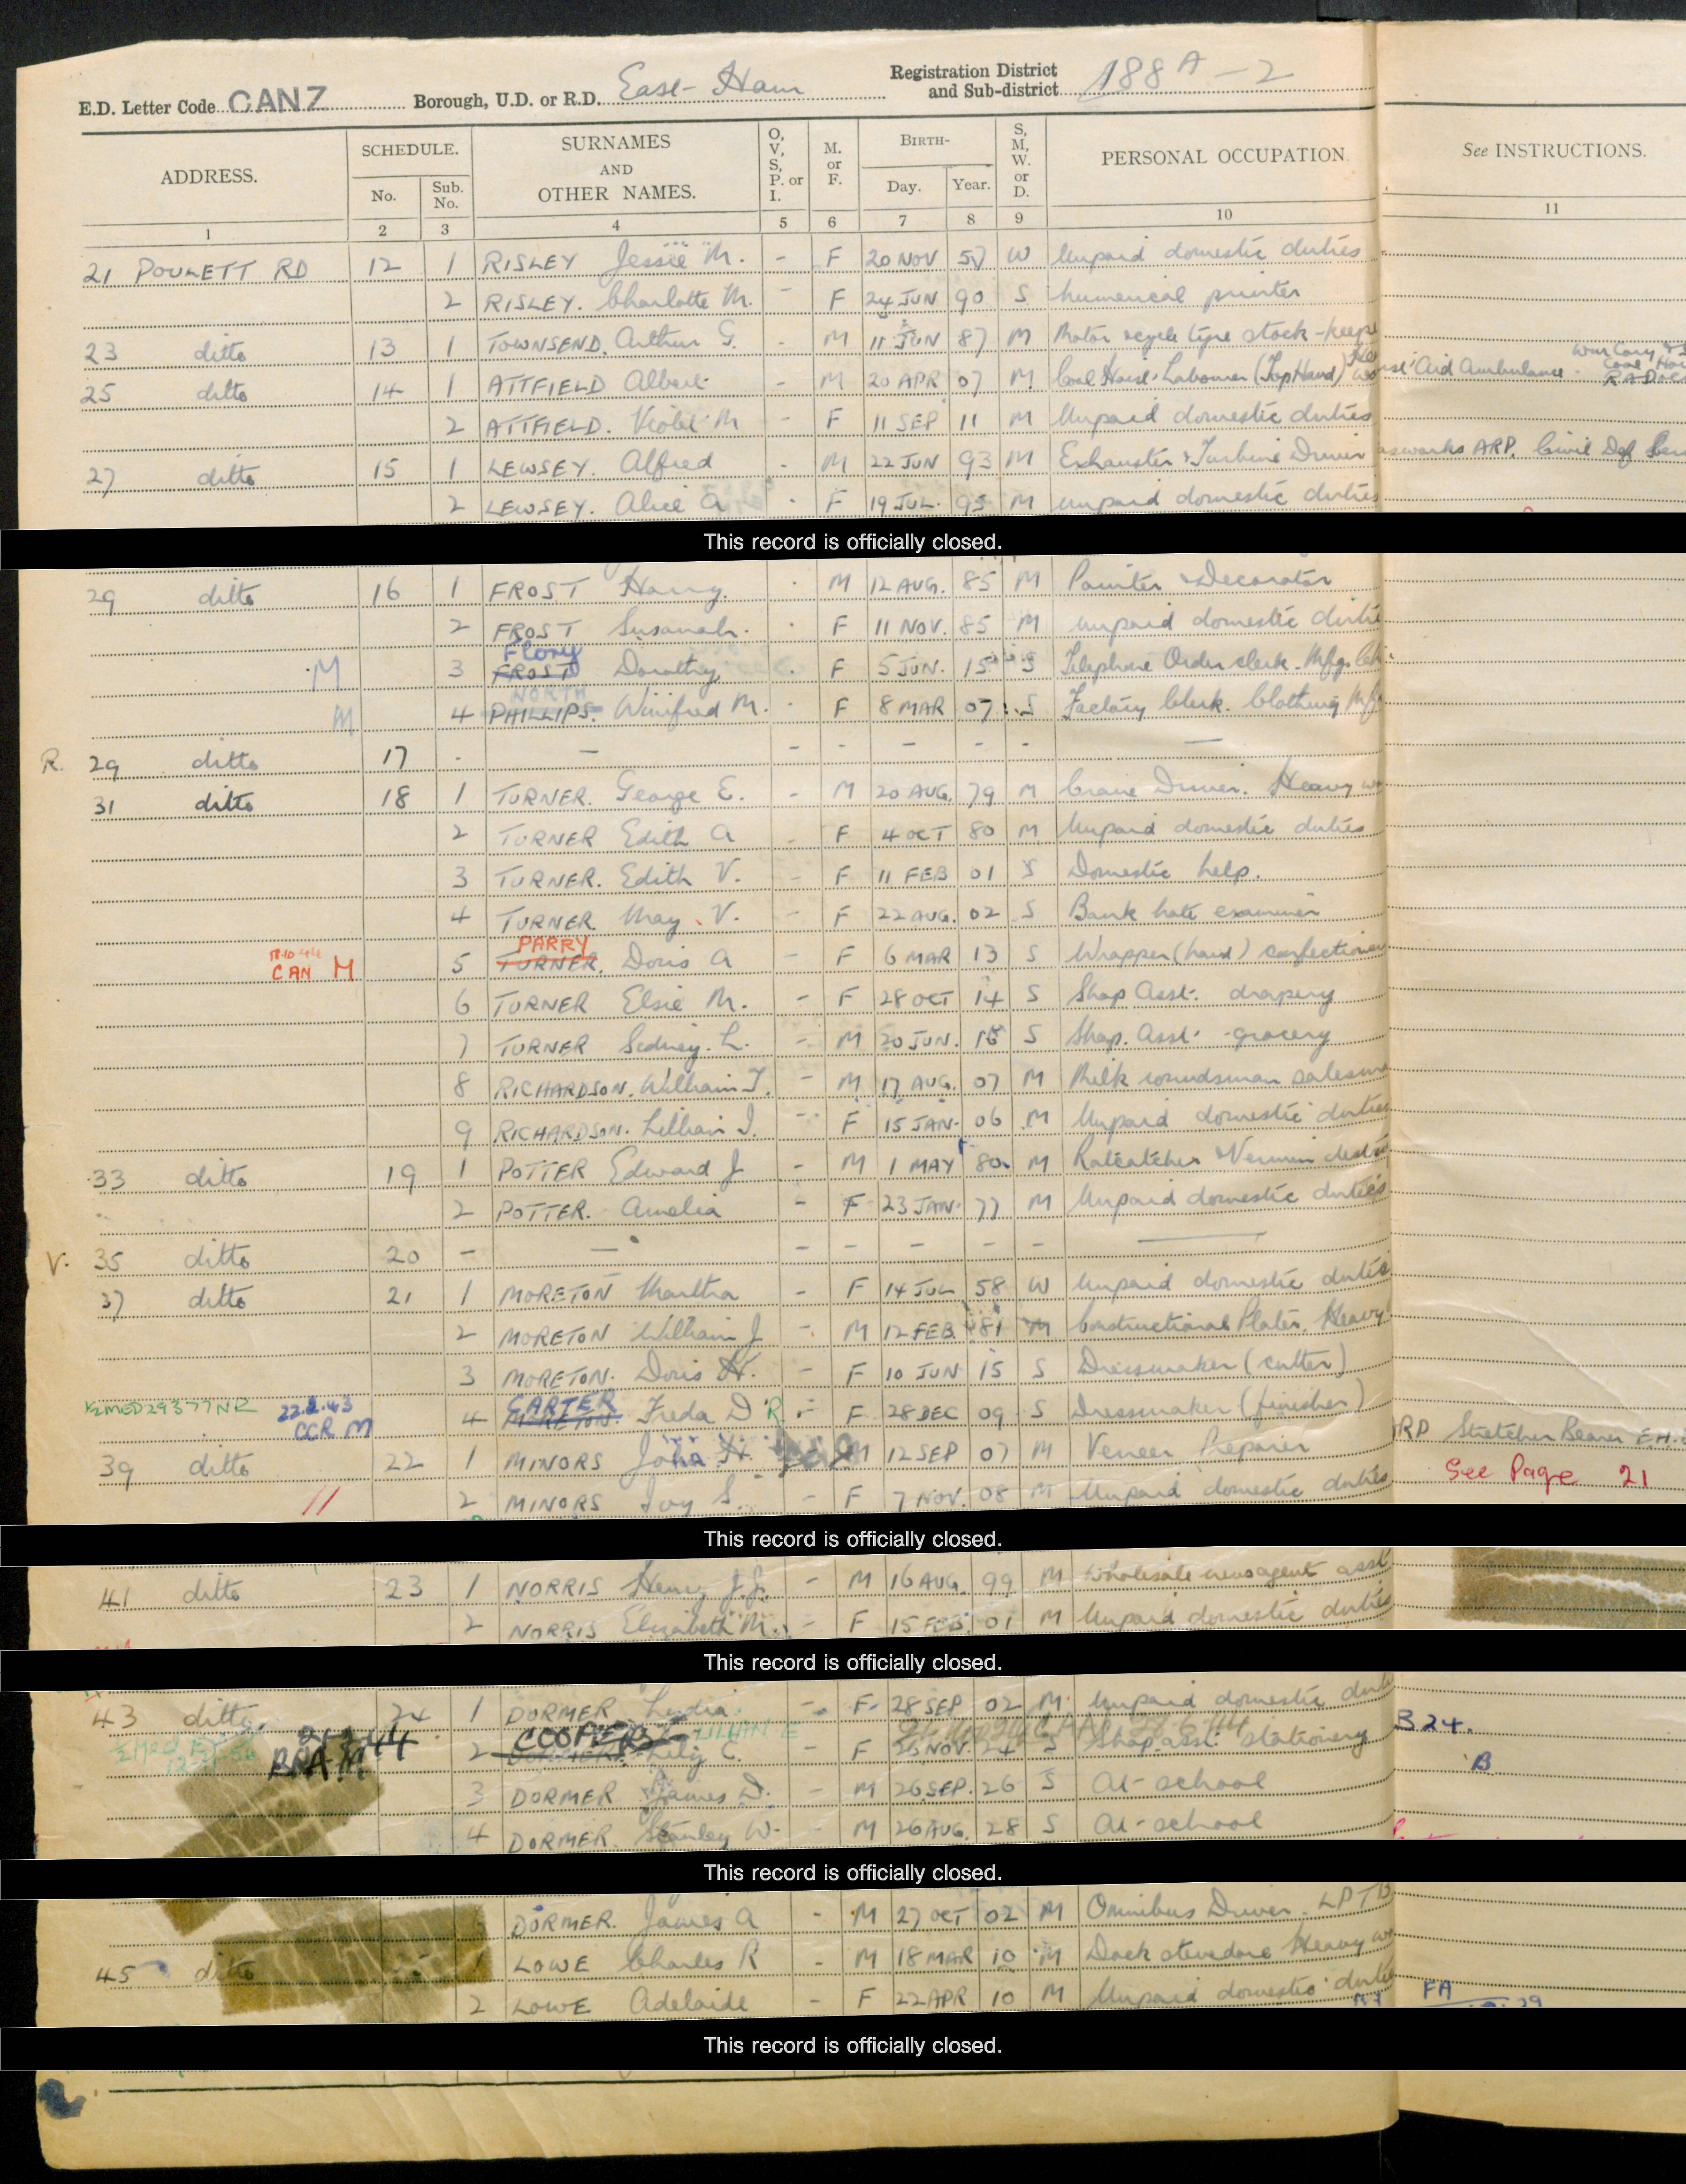 E.D. Letter Code CANZ Borough, U.D. or R.D. East-Ham Registration District and Sub-district 188 A - 2
ADDRESS. SCHEDULE. No. Sub. No. SURNAMES AND OTHER NAMES. O, V, S, P. or I. M. or F. BIRTH- Day. Year. S, M, W. or D. PERSONAL OCCUPATION. See INSTRUCTIONS.
1 2 3 4 5 6 7 8 9 10 11
21 POULETT RD 12 1 RISLEY Jessie M. - F 20 NOV 57 W Unpaid domestic duties
2 RISLEY. Charlotte M. - F 24 JUN 90 S Numerical printer
23 ditto 13 1 TOWNSEND. Arthur G. - M 11 JUN 87 M Motor & cycle tyre stock-keeper
25 ditto 14 1 ATTFIELD Albert - M 20 APR 07 M Coal Labourer (Top Hand) Aid Ambulance
2 ATTFIELD. Violet M - F 11 SEP 11 M Unpaid domestic duties
27 ditto 15 1 LEWSEY. Alfred - M 22 JUN 93 M Exhauster & Turbine Driver asworks ARP. Civil Def
2 LEWSEY. Alice A - F 19 JUL 95 M Unpaid domestic duties
This record is officially closed.
29 ditto 16 1 FROST Harry. M 12 AUG. 85 M Painter & Decorator
2 FROST Susanah. F 11 NOV. 85 M Unpaid domestic duties
Flory
M 3 FROST Dorothy F 5 JUN. 15 S Telephone Order clerk
NORTH
M 4 PHILLIPS. Winifred M. F 8 MAR 07 S Factory Clerk. Clothing Mfg
R. 29 ditto 17 - - - - - - - -
31 ditto 18 1 TURNER. George E. - M 20 AUG. 79 M Crane Driver. Heavy w
2 TURNER Edith A - F 4 OCT 80 M Unpaid domestic duties
3 TURNER. Edith V. - F 11 FEB 01 S Domestic help.
4 TURNER May. V. - F 22 AUG. 02 S Bank note examiner
PARRY
CAN M 5 TURNER. Doris A - F 6 MAR 13 S Wrapper (hand) confectionery
6 TURNER Elsie M. - F 28 OCT 14 S Shop Asst. drapery
7 TURNER Sidney. L. - M 20 JUN. 18 S Shop. Asst. grocery
8 RICHARDSON. William T. - M 17 AUG. 07 M Milk roundsman salesman
9 RICHARDSON. Lillian I. - F 15 JAN. 06 M Unpaid domestic duties
33 ditto 19 1 POTTER Edward J - M 1 MAY 80 M Ratcatcher & Vermin
2 POTTER. Amelia - F 23 JAN. 77 M Unpaid domestic duties
V. 35 ditto 20 - - - - - - - -
37 ditto 21 1 MORETON Martha - F 14 JUL 58 W Unpaid domestic duties
2 MORETON William J - M 12 FEB. 81 M Constructional Plater, Heavy
3 MORETON. Doris H. - F 10 JUN 15 S Dressmaker (cutter)
CARTER
22.2.43 CCR M 4 MORETON. Freda D R - F 28 DEC 09 S Dressmaker (finisher)
39 ditto 22 1 MINORS John H. M 12 SEP 07 M Veneer Preparer ARP Stretcher Bearer E.H.
11 2 MINORS Ivy S. - F 7 NOV. 08 M Unpaid domestic duties See Page 21
This record is officially closed.
41 ditto 23 1 NORRIS Henry J.J. - M 16 AUG. 99 M Wholesale newsagent asst
2 NORRIS Elizabeth M. - F 15 FEB. 01 M Unpaid domestic duties
This record is officially closed.
43 ditto 24 1 DORMER Lydia - F 28 SEP. 02 M Unpaid domestic duties B24.
COOPER LILIAN E
2 Lily C. - F NOV. 24 S Shop asst. stationery B
3 DORMER James D. - M 26 SEP. 26 S At school
4 DORMER. Stanley W. - M 26 AUG. 28 S At school
This record is officially closed.
DORMER. James A - M 27 OCT 02 M Omnibus Driver. LPTB
45 ditto 1 LOWE Charles R - M 18 MAR 10 M Dock stevedore Heavy w
2 LOWE Adelaide - F 22 APR 10 M Unpaid domestic duties FA
This record is officially closed.